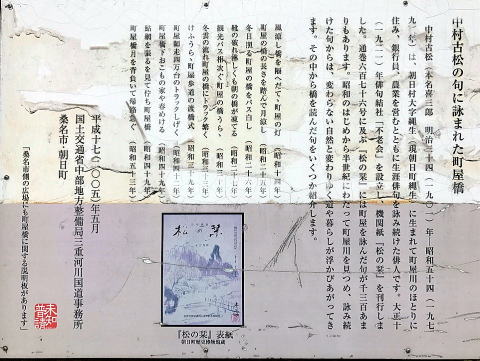 中村古松の句に詠まれた町屋橋
中村古松(本名喜三郎 明治三十四(一九〇一)年‐昭和五十四(一九七
九)年)は、朝日村大字縄生(現朝日町縄生)に生まれて町屋川のほとりに
住み、銀行員、農業を営むとともに生涯俳句を詠み続けた俳人です。大正十
(一九二一)年俳句結社「不老会」を設立し、機関紙『松の栞』を刊行しま
した。通巻六百七十六号に及ぶ『松の栞』には町屋を詠んだ句が千三百あま
りもあります。昭和のはじめから半世紀にわたって町屋川を見つめ、詠み続
けた句からは、変わらない自然と変わりゆく道や暮らしが浮かびあがってき
ます。その中から橋を読んだ句をいくつか紹介します。
風涼し橋を隔へだて町屋の灯 (昭和十四年)
町屋の橋の長さを踏んで月涼し
冬日照る町屋の橋をバス白し (昭和二十六年)
靴の破れ淋しくも朝の橋凍てる (昭和二十七年)
観光バス相次ぐ町屋の橋うらゝ (昭和三十年)
冬雲の流れ町屋の橋にトラック繁く
けふうらゝ町屋歩道の渡橋式
町屋師走四万台のトラックしげく (昭和四十年)
町屋橋下おこもの家や春めける (昭和四十九年)
鮎網を張るを見て佇ち町屋橋 (昭和四十九年)
町屋橋月を背負いて帰路急ぐ (昭和五十三年)
平成十七(二〇〇五)年五月
国土交通省中部地方整備局三重河川国道事務所
桑名市・朝日町
「桑名市側の広場にも町屋橋に関する説明板があります」
松の栞
『松の栞』表紙
朝日町歴史博物館蔵
未知普請